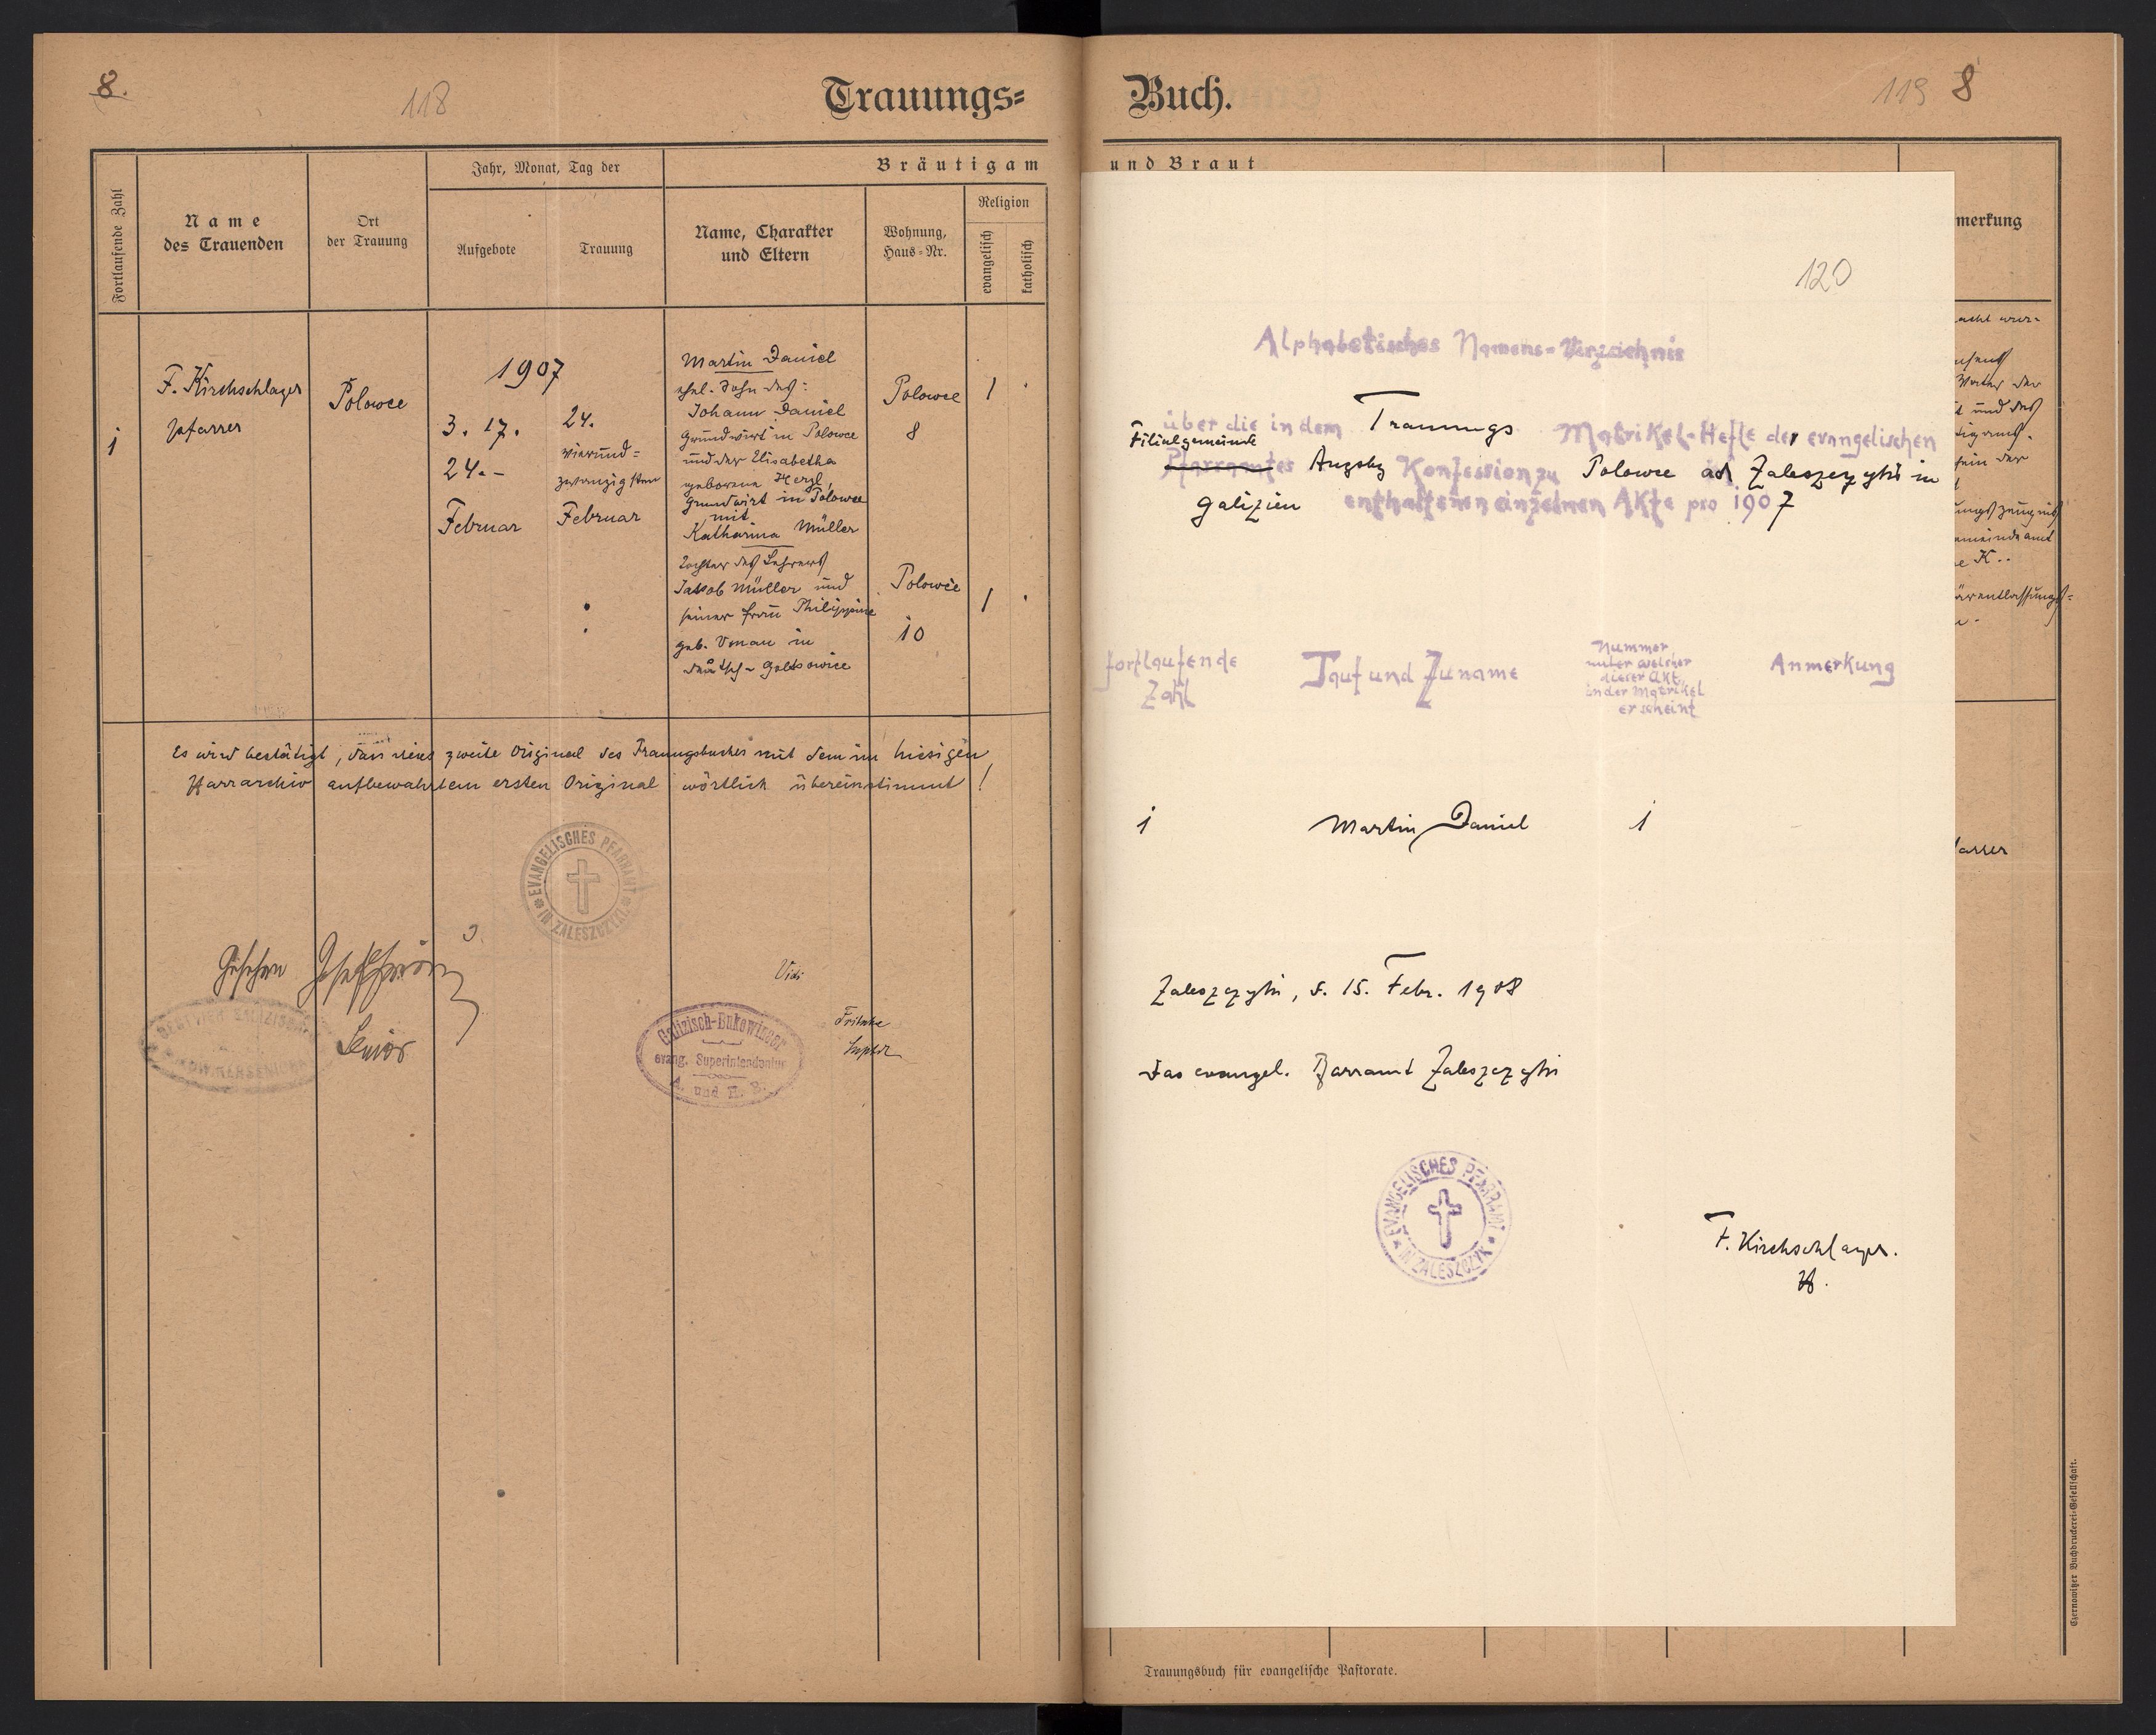 8.
118
Trauungs=
Fortlaufende Zahl
Name
des Trauenden
Ort
der Trauung
Jahr, Monat, Tag der
Aufgebote
Trauung
Bräutigam
Name, Charakter
und Eltern
Wohnung,
Haus=Nr.
Religion
evangelisch
katholisch
1
F. Kirschschlager
Pfarrer
Polowce
1907
3. 17.
24.-
Februar
24.
vierund=
zwanzigsten
Februar
Martin Daniel
ehel. Sohn des:
Johann Daniel
Grundwirt in Polowce
und der Elisabetha
geborene Hergl,
Grundwirt in Polowce
mit
Katharina Müller
Tochter des Lehrers
Jakob Müller und
seiner Frau Philippine
geb. Uman in
Polowce
8
1
Polowce
10
1
Es wird bestätigt, dass dieses zweite Original des Trauungsbuches mit dem im hiesigen
Pfarrarchiv aufbewahrtem ersten Original wörtlich übereinstimmt!
EVANGELISCHES PFARRAMT
IN ZALESZCZYKI
Gesehen
Senior
Vidi
Galizisch-Bukowinaer
evang. Superintendentur
A. und H. B.
Buch.
119 8
und Braut
merkung
120
Alphabetisches Namens=Verzeichnis
über die in dem Trauungs Matrikel-Hefte der evangelischen
Filialgemeinde
Pfarramtes Augsbg Konfession zu Polowce ad Zaleszczyki in
Galizien enthaltenen einzelnen Akte pro 1907
fortlaufende
Zahl
Tauf und Zuname
Nummer
unter welcher
dieser Akt
in der Matrikel
erscheint
Anmerkung
1 Martin Daniel 1
Zaleszczyki, d. 15. Febr. 1908
Das evangel. Pfarramt Zaleszczyki
EVANGELISCHES PFARRAMT
IN ZALESZCZYK
F. Kirchschlager.
Pf.
Trauungsbuch für evangelische Pastorate.
Czernowitzer Buchdruckerei=Gesellschaft.